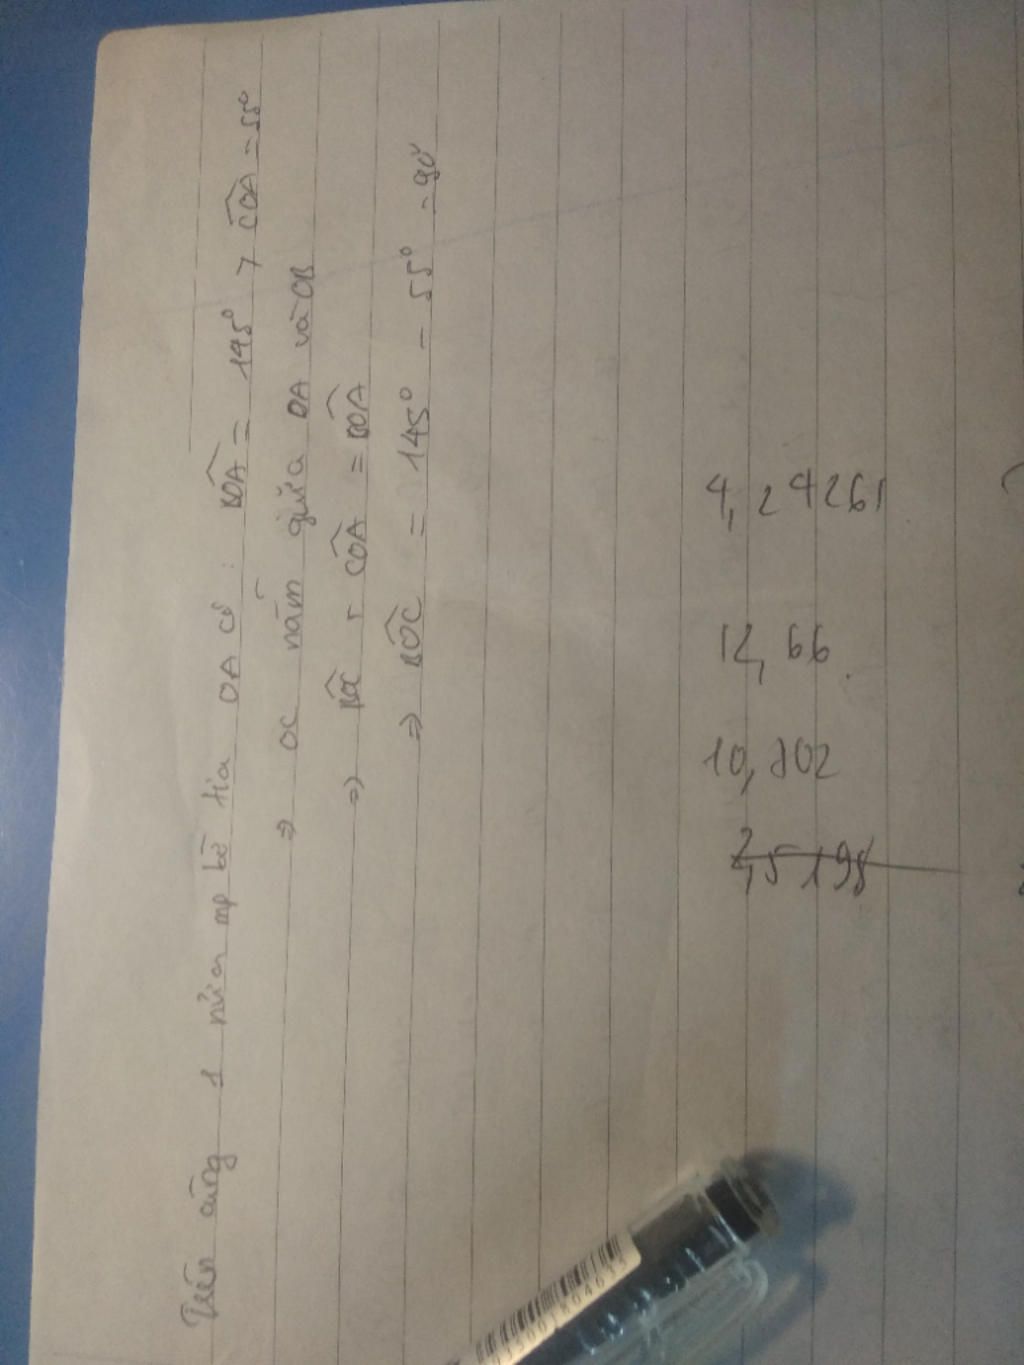 Trên cùng 1 nửa mp bờ tia OA có: BOA = 145° > COA = 55°
=> OC nằm giữa OA và OB
=> BOC + COA = BOA
=> BOC = 145° - 55° = 90°
4,24261
12,66
10,102
2,5198